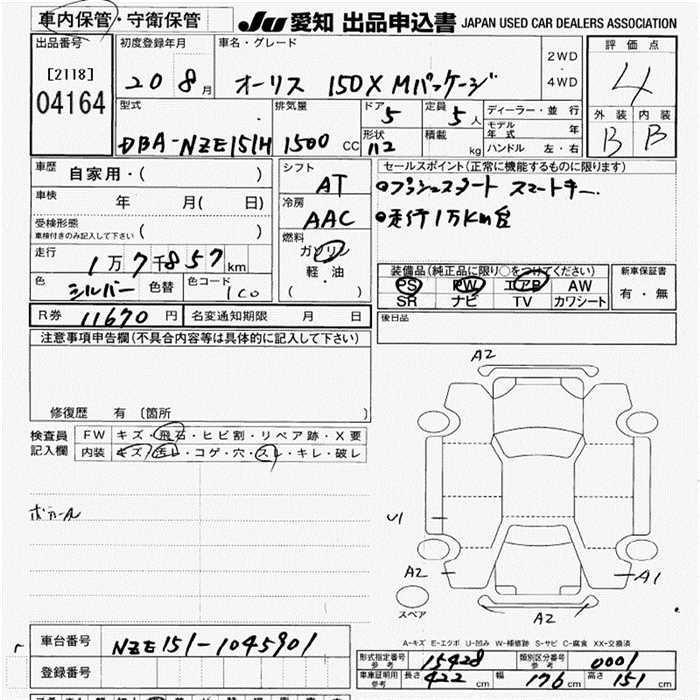 車内保管・守衛保管 JU 愛知 出品申込書 JAPAN USED CAR DEALERS ASSOCIATION
出品番号 初度登録年月 車名・グレード 評価点
[2118] 20 8月 オーリス 150X Mパッケージ 2WD・4WD 4
04164 型式 排気量 ドア 5 定員 5人 ディーラー・並行 外装 内装
モデル年式 年
DBA-NZE151H 1500 CC 形状 112 積載 kg ハンドル 左・右 B B
車歴 自家用・( ) シフト セールスポイント(正常に機能するものに限ります)
AT ●プッシュスタート スマートキー
車検 年 月( 日) 冷房
AAC ●走行1万Km台
受検形態
車検付きのみ記入して下さい ( )
走行 燃料
1万7千857km ガソリン
軽・油
( ・ )
装備品(純正品に限り○をつけてください) 新車保証書
色 シルバー 色替 色コード 1C0 PS PW エアB AW 有・無
SR ナビ TV カワシート
R券 11670円 名変通知期限 月 日 後日品
注意事項申告欄(不具合内容等は具体的に記入して下さい)
A2
修復歴 有 〔箇所 〕
検査員 FW キズ・飛石・ヒビ割・リペア跡・X要
記入欄 内装 キズ・汚レ・コゲ・穴・スレ・キレ・破レ
ボカール
U1
A2 A1
スペア A2
A-キズ E-エクボ U-凹み W-補修跡 S-サビ C-腐食 XX-交換済
車台番号 NZE151-1045901
形式指定番号 参考 15428 類別区分番号 参考 0001
登録番号 車庫証明用 参考 長さ 422 cm 幅 176 cm 高さ 151 cm